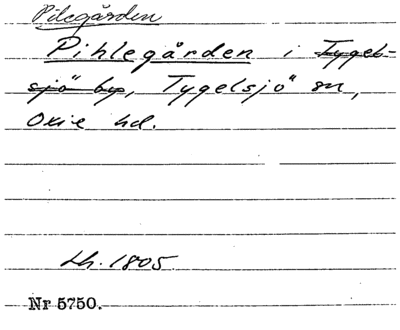 Pilegården
Pihlegården i Tygel-
sjö by, Tygelsjö sn,
Oxie hd.
Lh. 1805.
Nr 5750.